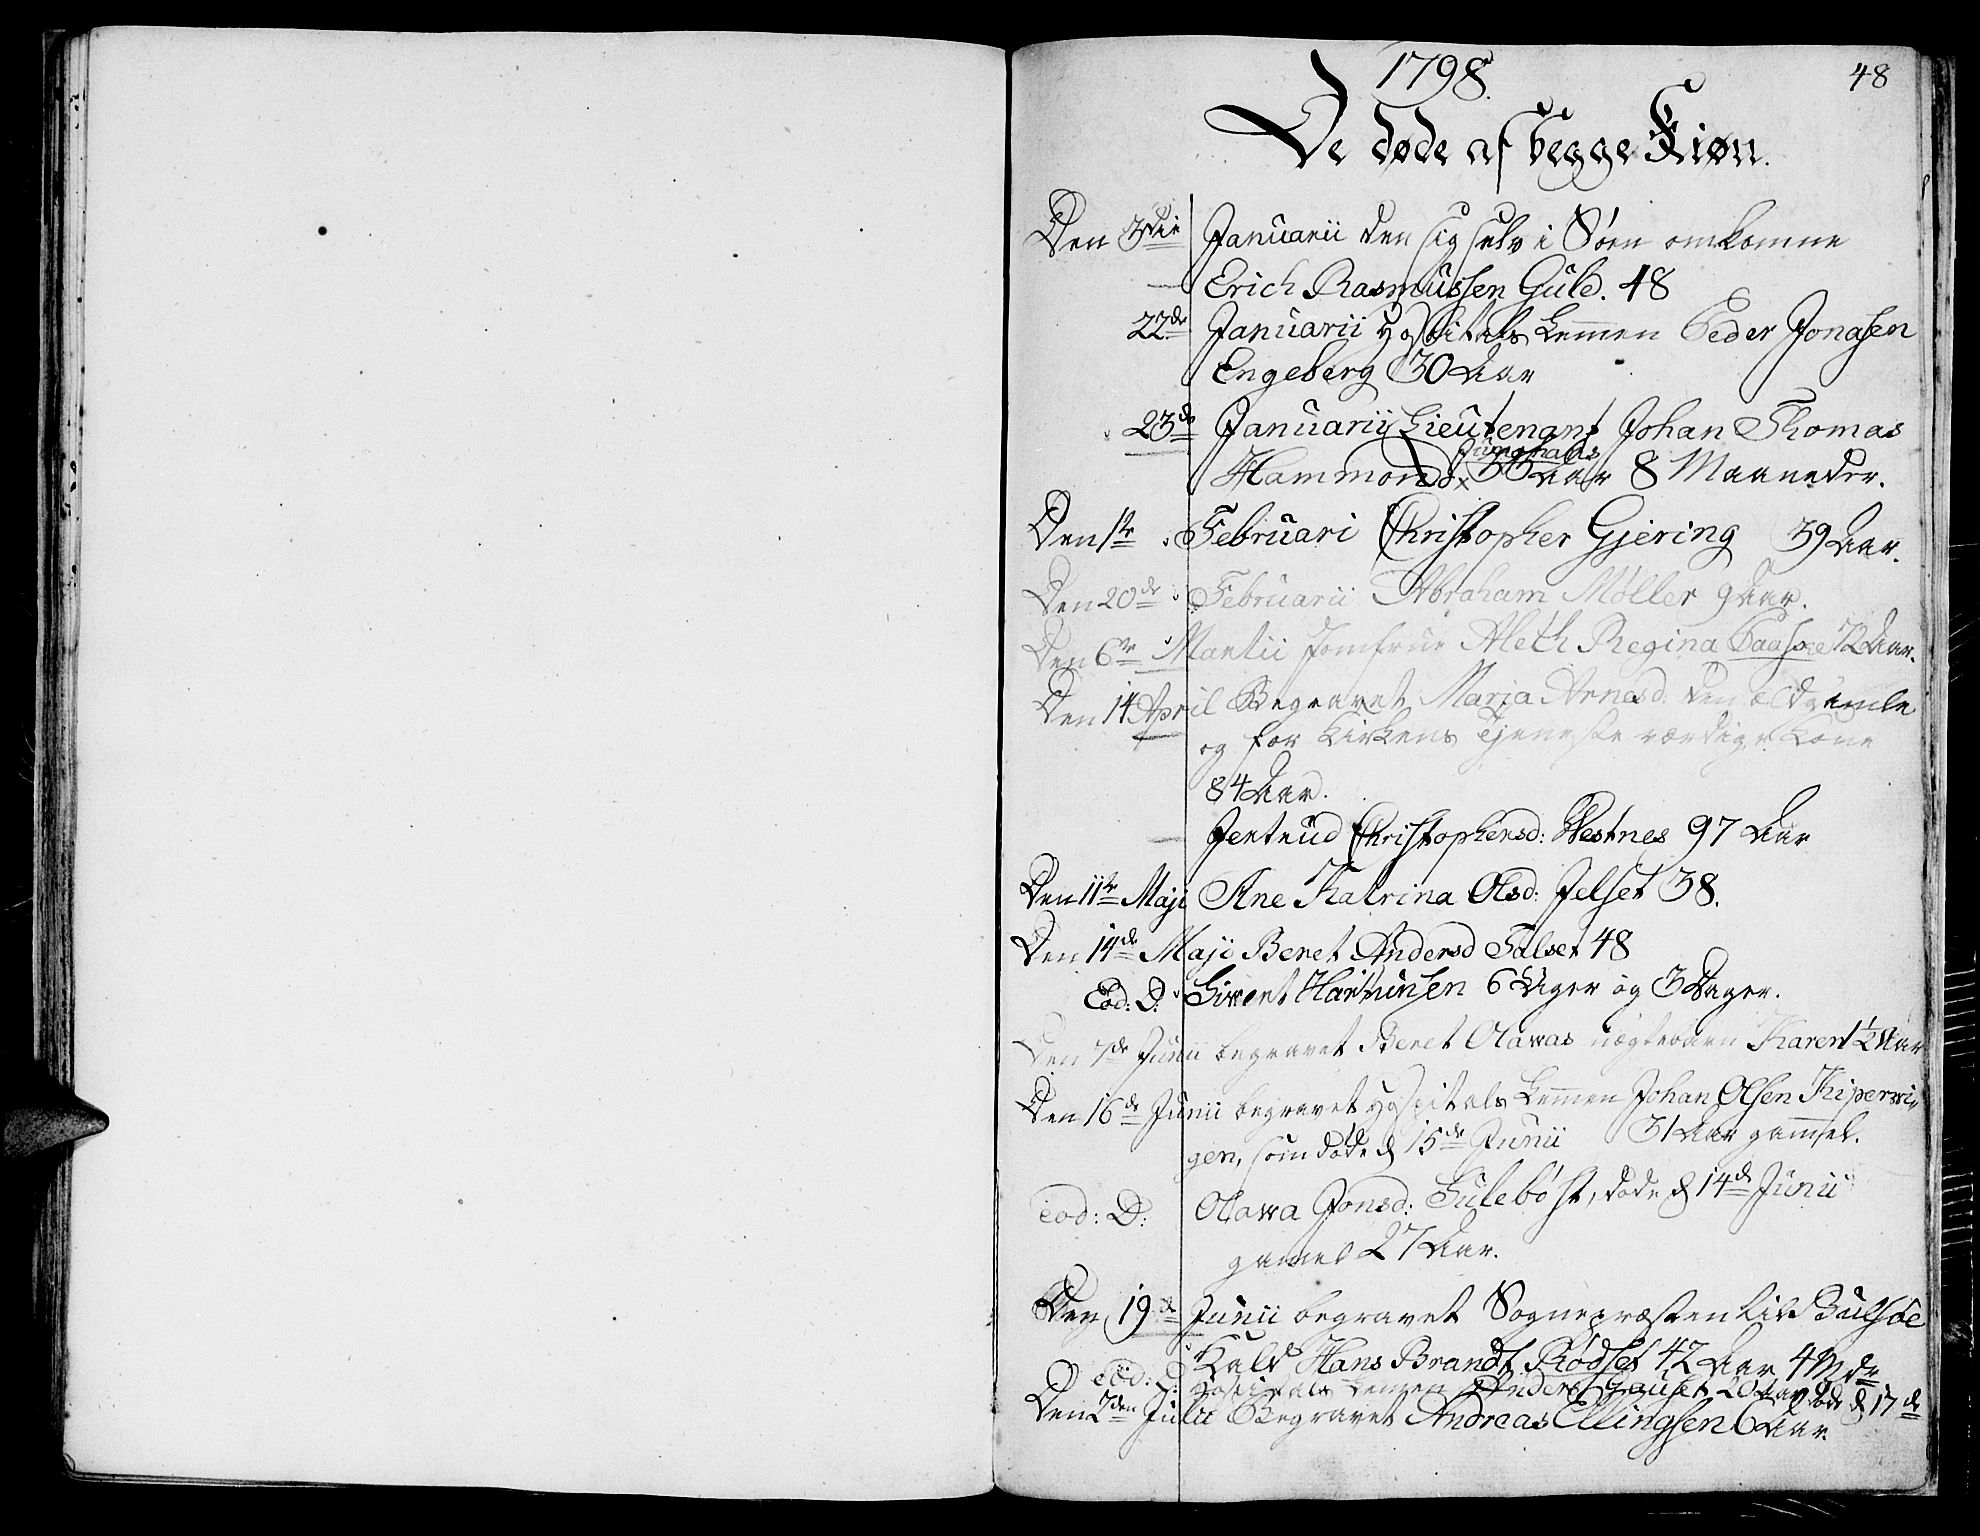 48
1798.
De døde af begge Kiøn.
Den 3die Januarii den sig selv i Søen omkomne
Erich Rasmussen Guld. 48
22de Januarii Hospitals Lemmen Peder Jonasen
Engeberg 30 Aar
23de Januarii Lieutenant Johan Thomas
Junghans
Hammond x 36 Aar 8 Maaneder.
Den 1te Februari Christopher Gjering 39 Aar.
Den 20de Februarii Abraham Møller 9 Aar.
Den 6te Martii Jomfrue Aleth Regina 72 Aar.
Den 14 April Begravet Maria Arnesd: den Eldgamle
og for Kirkens Tjeneste værdige Kone
84 Aar.
Jertrud Christophersd: Vestnes 97 Aar
Den 11te Maji Ane Katrina Olsd: Jelset 38.
Den 14de Maji Beret Andersd Talset 48
Eod: D: Sivert 6 Uger og 3 Dager.
Den 7de Junii begravet Beret Olavas uægtebarn Karen 1½ Aar
Den 16de Junii begravet Hospitals Lemmen Johan Olsen Kipervi-
gen, som døde d 15de Junii 31 Aar gammel.
eod: D: Olava Jonsd: Julebøst, døde d 14de Junii
gamel 27 Aar.
Den 19de Junii begravet Sognepræsten til Bulsøe
Kald Hans Brandt Rødset 42 Aar 4 Mdr
Eod: D: Hospitals Lemmen Anders 20 Aar døde d 17de
Den 7den Julii Begravet Andreas Ellingsen 6 Aar.